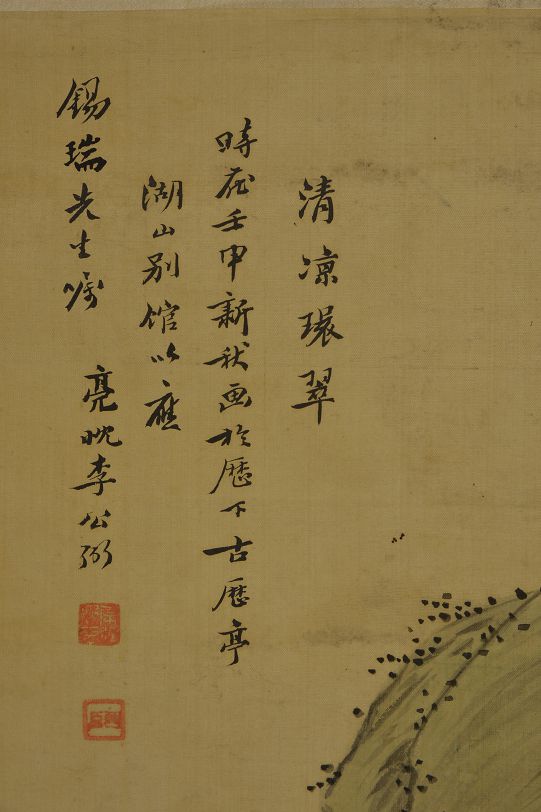 清凉環翠
時在壬申新秋画於歷下古歷亭
湖山别館以應
錫瑞先生嘱
亮 李公弼